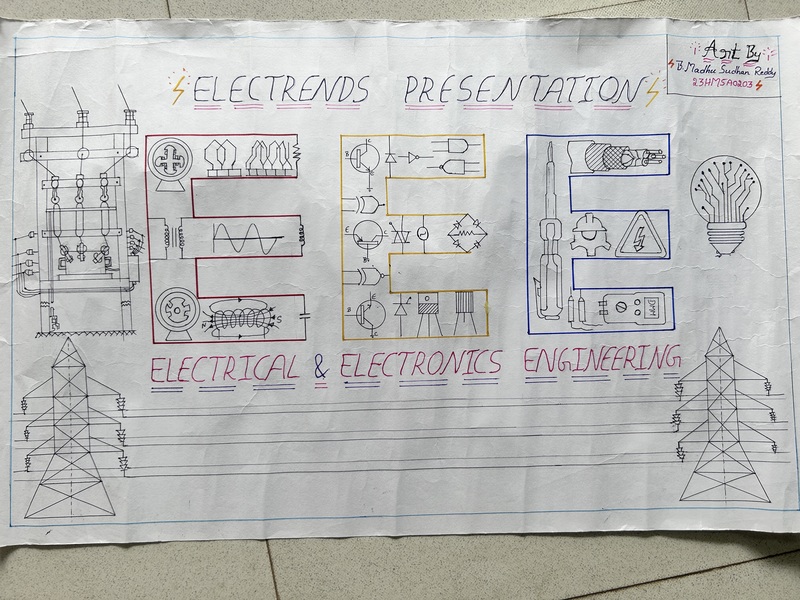 Art By
B. Madhu Sudhan Reddy
23HM5A0203
ELECTRENDS PRESENTATION
B C
E
B
E
C
E
B
C
N S
ELECTRICAL & ELECTRONICS ENGINEERING